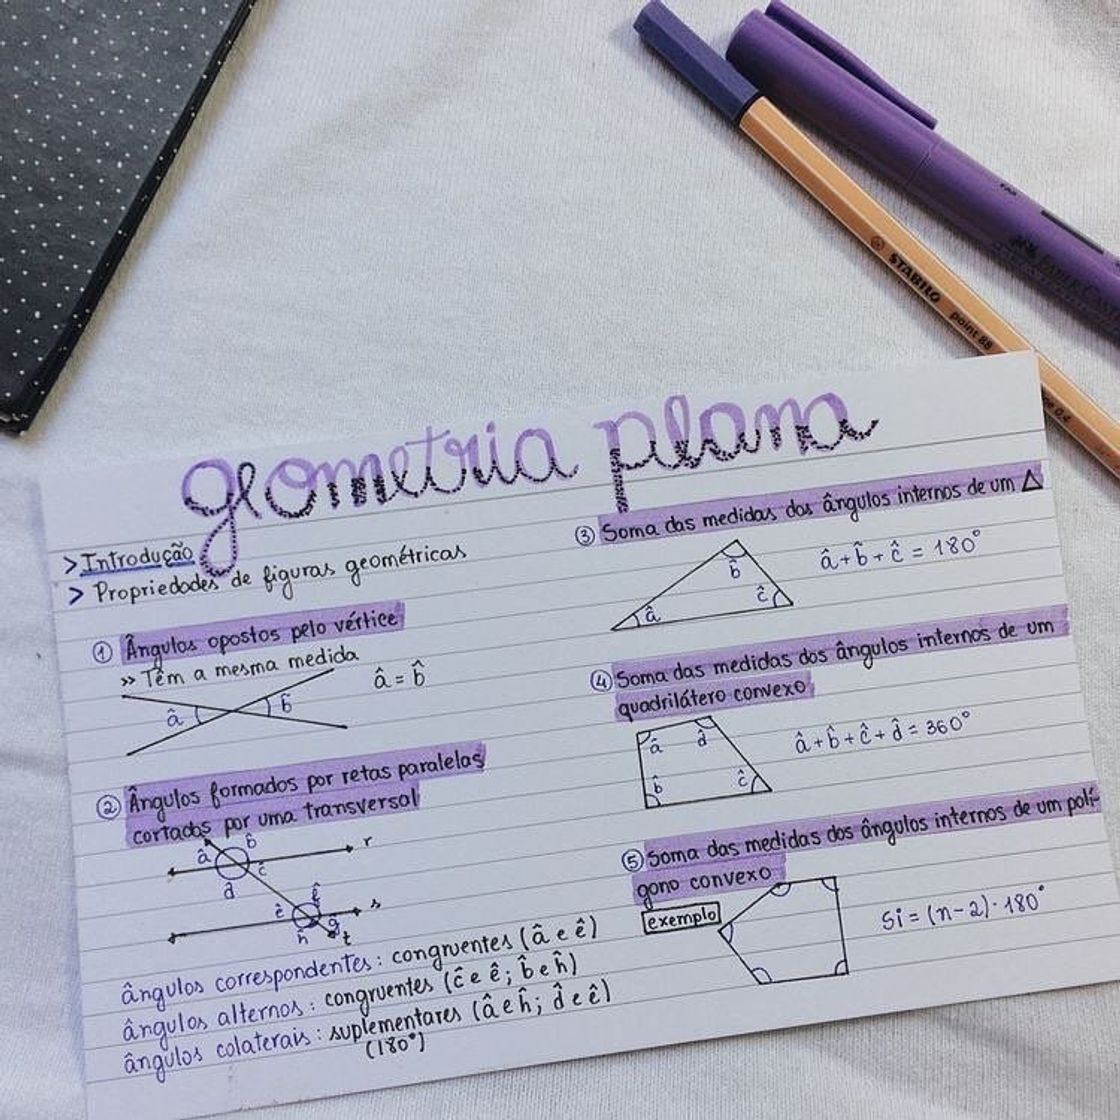 STABILO
point 88
geometria plana
> Introdução
> Propriedades de figuras geométricas
① Ângulos opostos pelo vértice
>> Têm a mesma medida
â = b̂
â b̂
② Ângulos formados por retas paralelas
cortadas por uma transversal
â b̂ r
d ĉ
ê f̂ s
ĥ ĝ t
ângulos correspondentes: congruentes (â e ê)
ângulos alternos: congruentes (ĉ e ê; b̂ e ĥ)
ângulos colaterais: suplementares (â e ĥ; d̂ e ê)
(180°)
③ Soma das medidas dos ângulos internos de um △
â + b̂ + ĉ = 180°
b̂
â ĉ
④ Soma das medidas dos ângulos internos de um
quadrilátero convexo
â d̂
b̂ ĉ
â + b̂ + ĉ + d̂ = 360°
⑤ Soma das medidas dos ângulos internos de um polí-
gono convexo
exemplo
Si = (n-2) · 180°